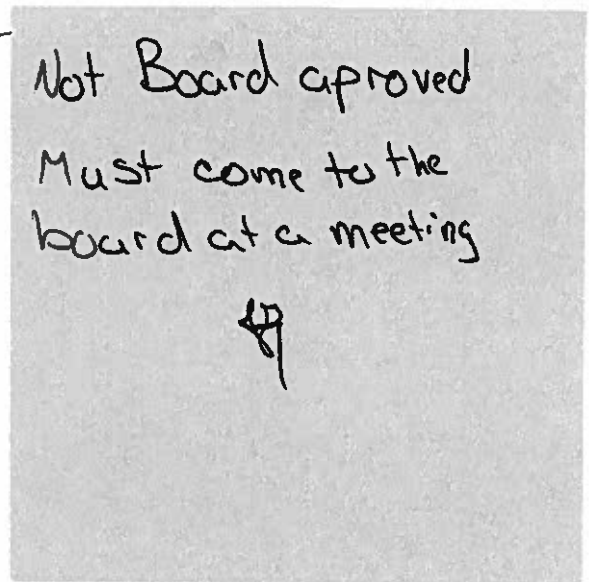 Not Board aproved
Must come to the
board at a meeting